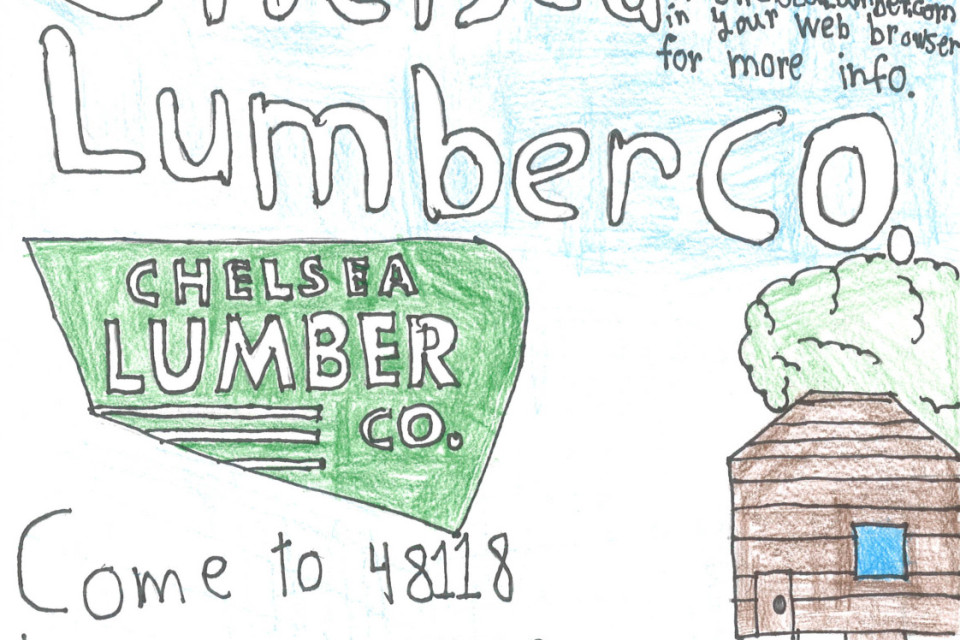 Chelsea
in your web browser
for more info.
Lumber Co.
CHELSEA
LUMBER
CO.
Come to 48118